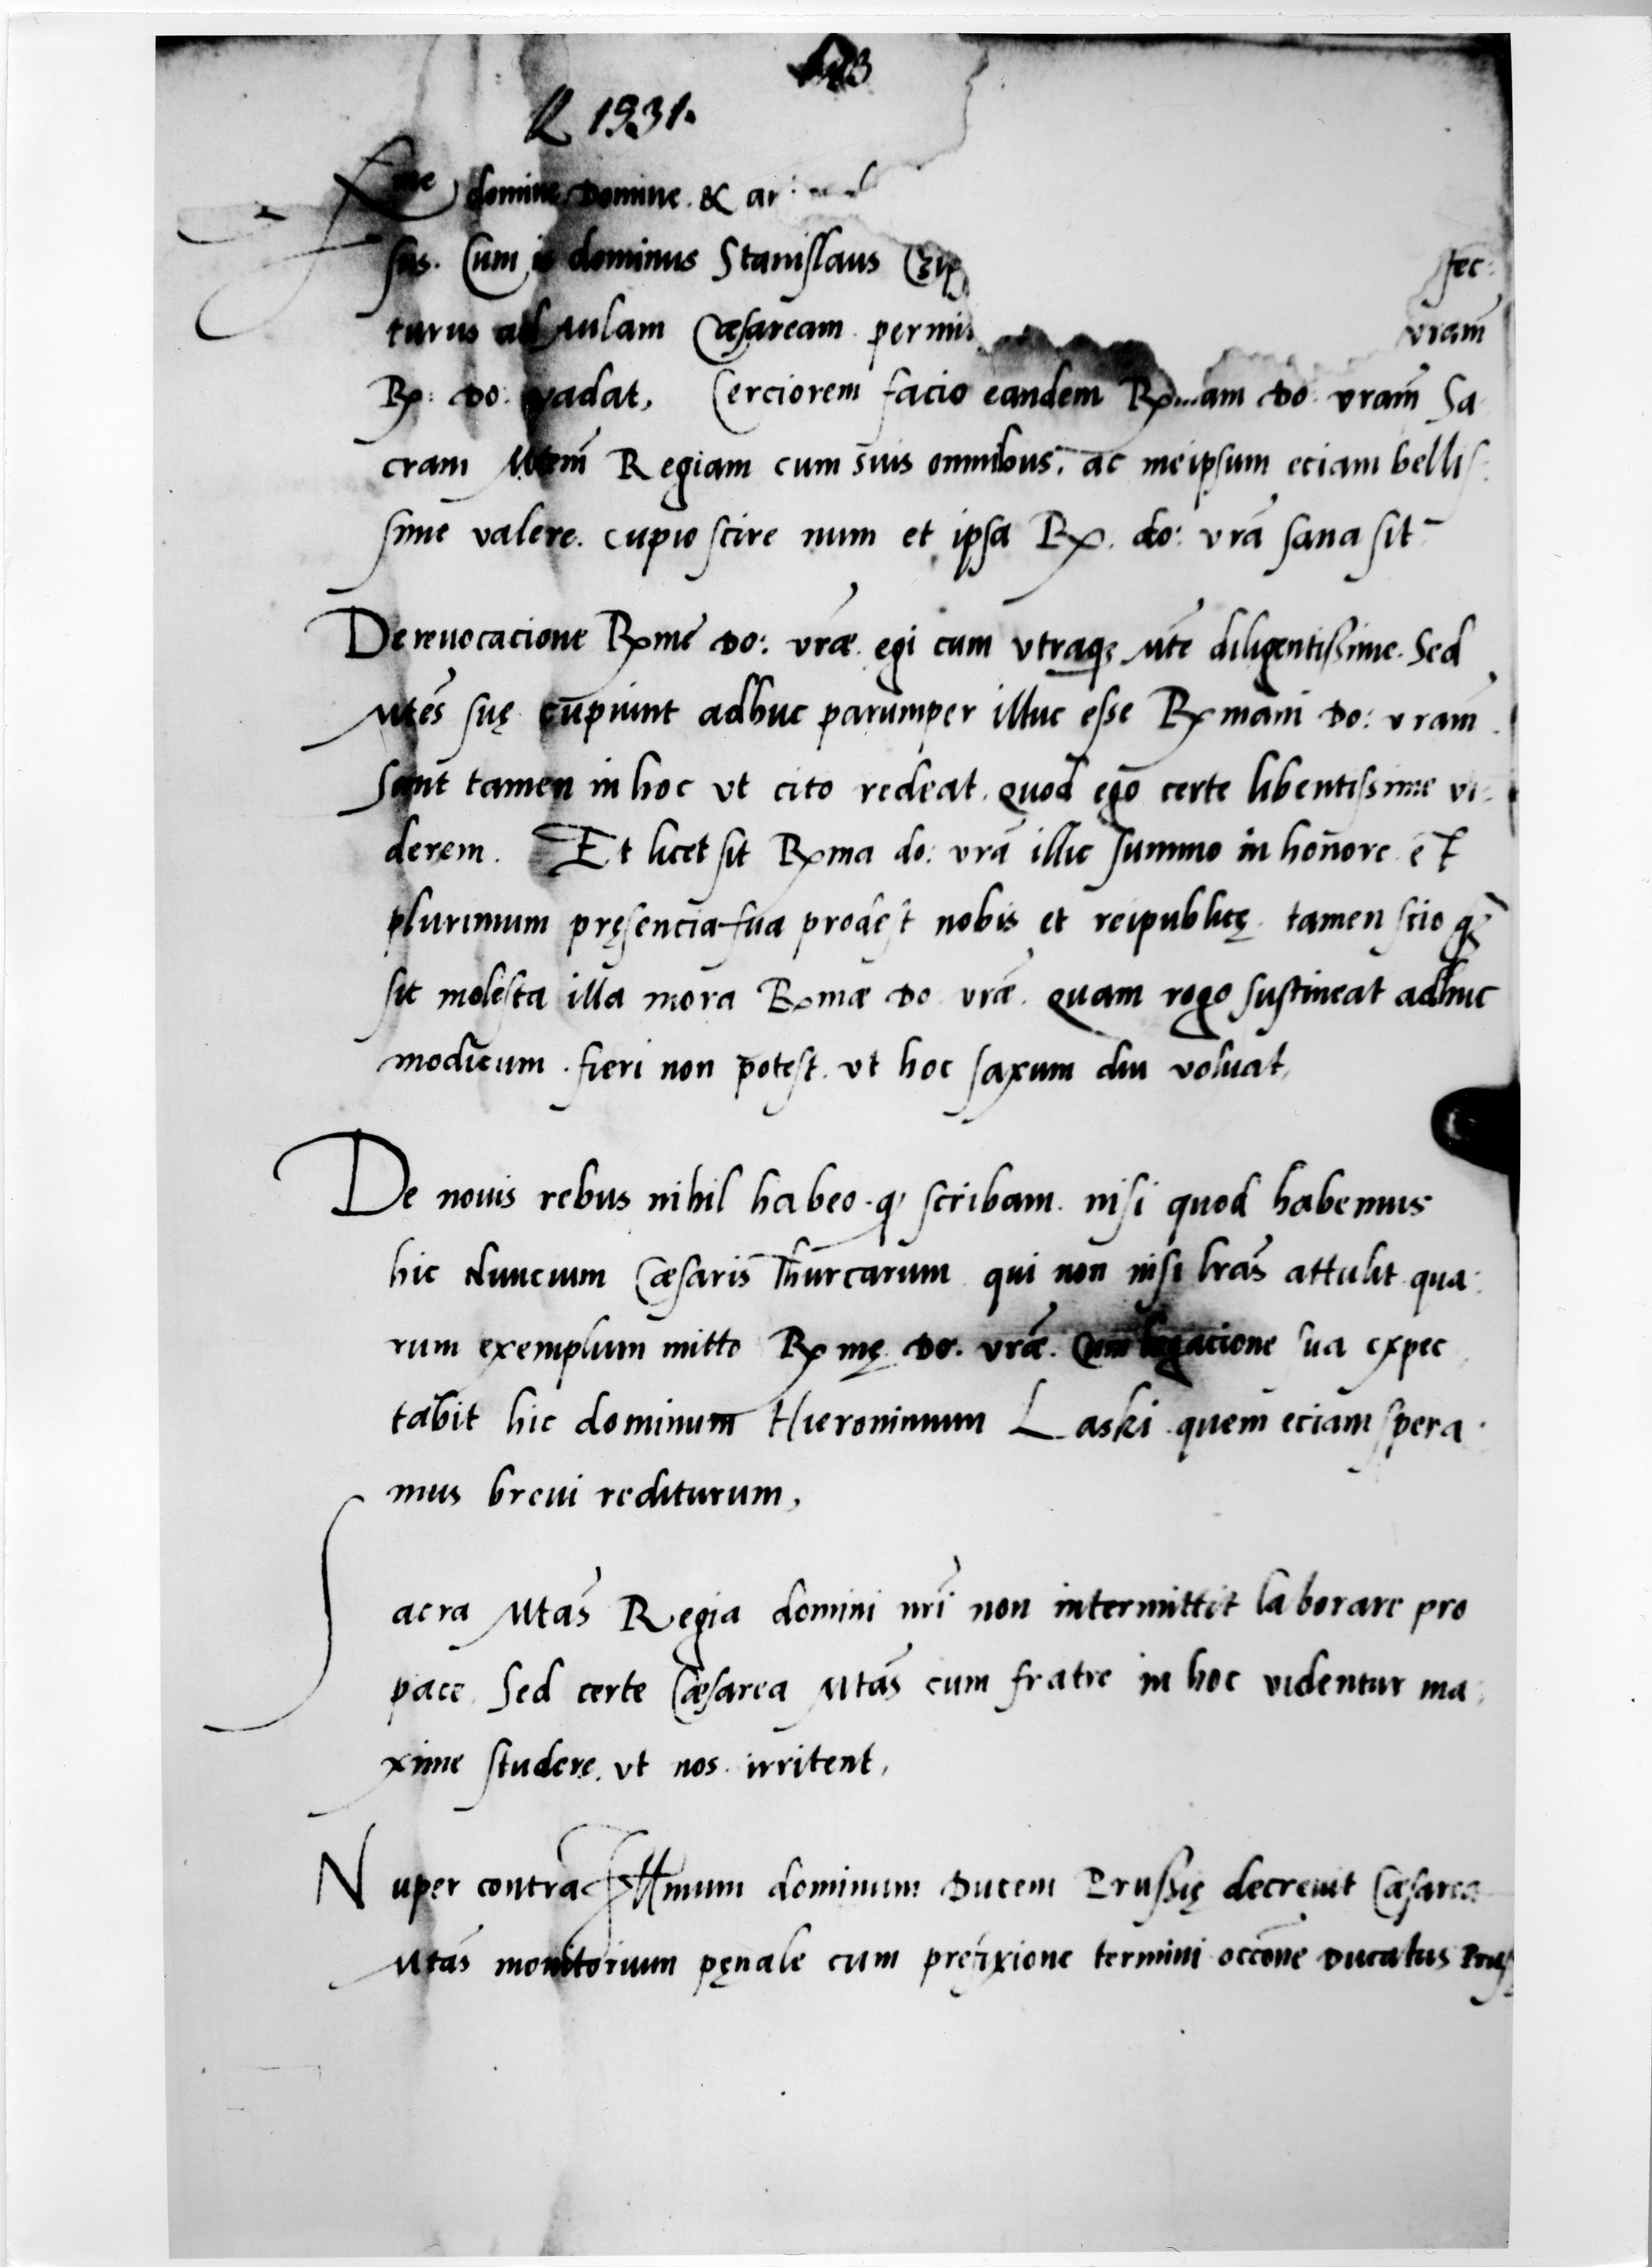 R 1531.
me domine Domine. & ar
sus. Cum is dominus Stanislaus Czip fec:
turus ad Aulam Cæsaream permi vram̄
Rx: Do: vadat, Cerciorem facio eandem Rx am Do: vram̄ Sa
cram Mtem̄ Regiam cum suis omnibus, ac meipsum eciam bellis:
sime valere. cupio scire num et ipsa Rx. do: vrā sana sit
De reuocacione Rxme Do: vræ egi cum vtraqꝫ Mte diligentissime. Sed
Mtes suę cupiunt adhuc parumper illuc esse Rxmam Do: vram
Sunt tamen in hoc vt cito redeat. quod ego certe libentissime vi:
derem. Et licet sit Rxma do: vrā illic summo in honore et
plurimum pręsencia sua prodest nobis et reipublicę tamen scio qꝫ
sit molesta illa mora Rxmæ Do vræ. quam rogo sustineat adhuc
modicum. fieri non potest. vt hoc saxum diu voluat,
De nouis rebus nihil habeo q scribam. nisi quod habemus
hic Nuncium Cæsaris Thurcarum qui non nisi lras attulit qua:
rum exemplum mitto Rxmę Do. vræ. Cum legacione sua expec
tabit hic dominum Hieronimum Laski quem eciam spera:
mus breui rediturum,
Sacra Mtas Regia domini nri non intermittit laborare pro
pace. Sed certe Cæsarea Mtas cum fratre in hoc videntur ma:
xime studere. vt nos irritent,
Nuper contra Illmum dominum Ducem Prussię decreuit Cæsarea
Mtas monitorium pęnale cum prefixione termini occōne Ducatus Prus